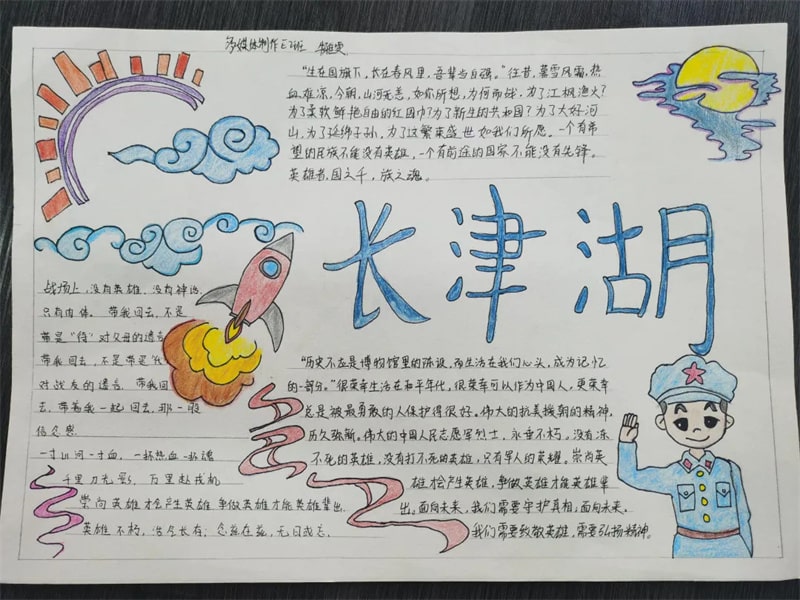 多媒体制作E2班
“生在国旗下，长在春风里，吾辈当自强。”往昔，暮雪风霜，热
血雄凉，今朝，山河无恙，如你所想，为何而战，为了江枫渔火？
为了柔软鲜艳自由的红围巾？为了新生的共和国？为了大好河
山，为了延绵子孙，为了这繁荣盛世如我们所愿。一个有希
望的民族不能没有英雄，一个有前途的国家不能没有先锋。
英雄者，国之干，族之魂。
长津湖
战场上，没有英雄，没有神话
只有肉体。带我回去，不是
带是“待”对父母的遗言
带我回去，不是带是“代
对战友的遗言，带我回
去，带着我一起回去，那一股
信念恩
一寸山河一寸血，一抔热血一抔魂
千里刀光影，万里赴戎机
崇尚英雄才会产生英雄，争做英雄才能英雄辈出
英雄不朽，浩气长存；念兹在兹，无日或忘。
“历史不应是博物馆里的陈设，而生活在我们心头，成为记忆
的一部分。”很荣幸生活在和平年代，很荣幸可以作为中国人，更荣幸
总是被最勇敢的人保护得很好。伟大的抗美援朝的精神，
历久弥新。伟大的中国人民志愿军烈士，永垂不朽，没有冻
不死的英雄，没有打不死的英雄，只有军人的荣耀。崇尚英
雄才会产生英雄，争做英雄才能英雄辈
出。面向未来，我们需要守护真相，面向未来，
我们需要致敬英雄，需要弘扬精神。